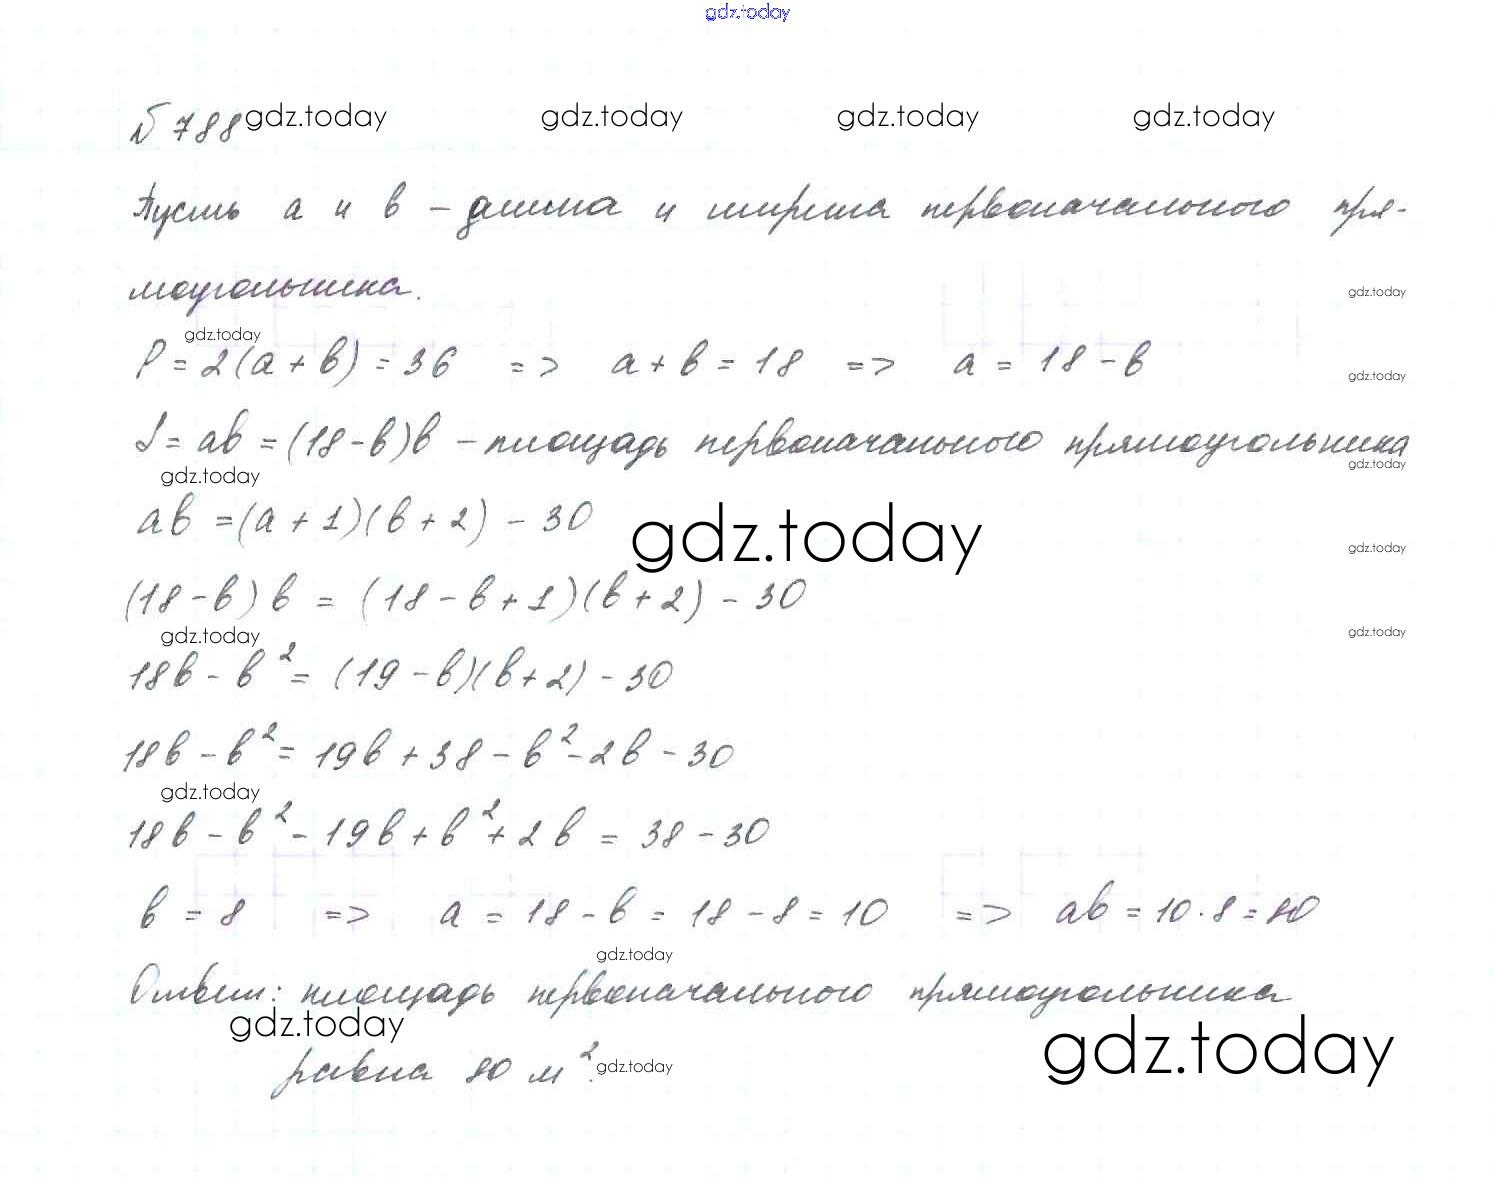 gdz.today
№ 788
gdz.today gdz.today gdz.today gdz.today
Пусть a и b – длина и ширина первоначального пря-
моугольника.
gdz.today
gdz.today
P = 2(a + b) = 36 => a + b = 18 => a = 18 - b
gdz.today
S = ab = (18 - b)b – площадь первоначального прямоугольника
gdz.today
gdz.today
ab = (a + 1)(b + 2) - 30
gdz.today
gdz.today
(18 - b)b = (18 - b + 1)(b + 2) - 30
gdz.today
gdz.today
18b - b² = (19 - b)(b + 2) - 30
18b - b² = 19b + 38 - b² - 2b - 30
gdz.today
18b - b² - 19b + b² + 2b = 38 - 30
b = 8 => a = 18 - b = 18 - 8 = 10 => ab = 10 · 8 = 80
gdz.today
Ответ: площадь первоначального прямоугольника
gdz.today
gdz.today
равна 80 м².
gdz.today